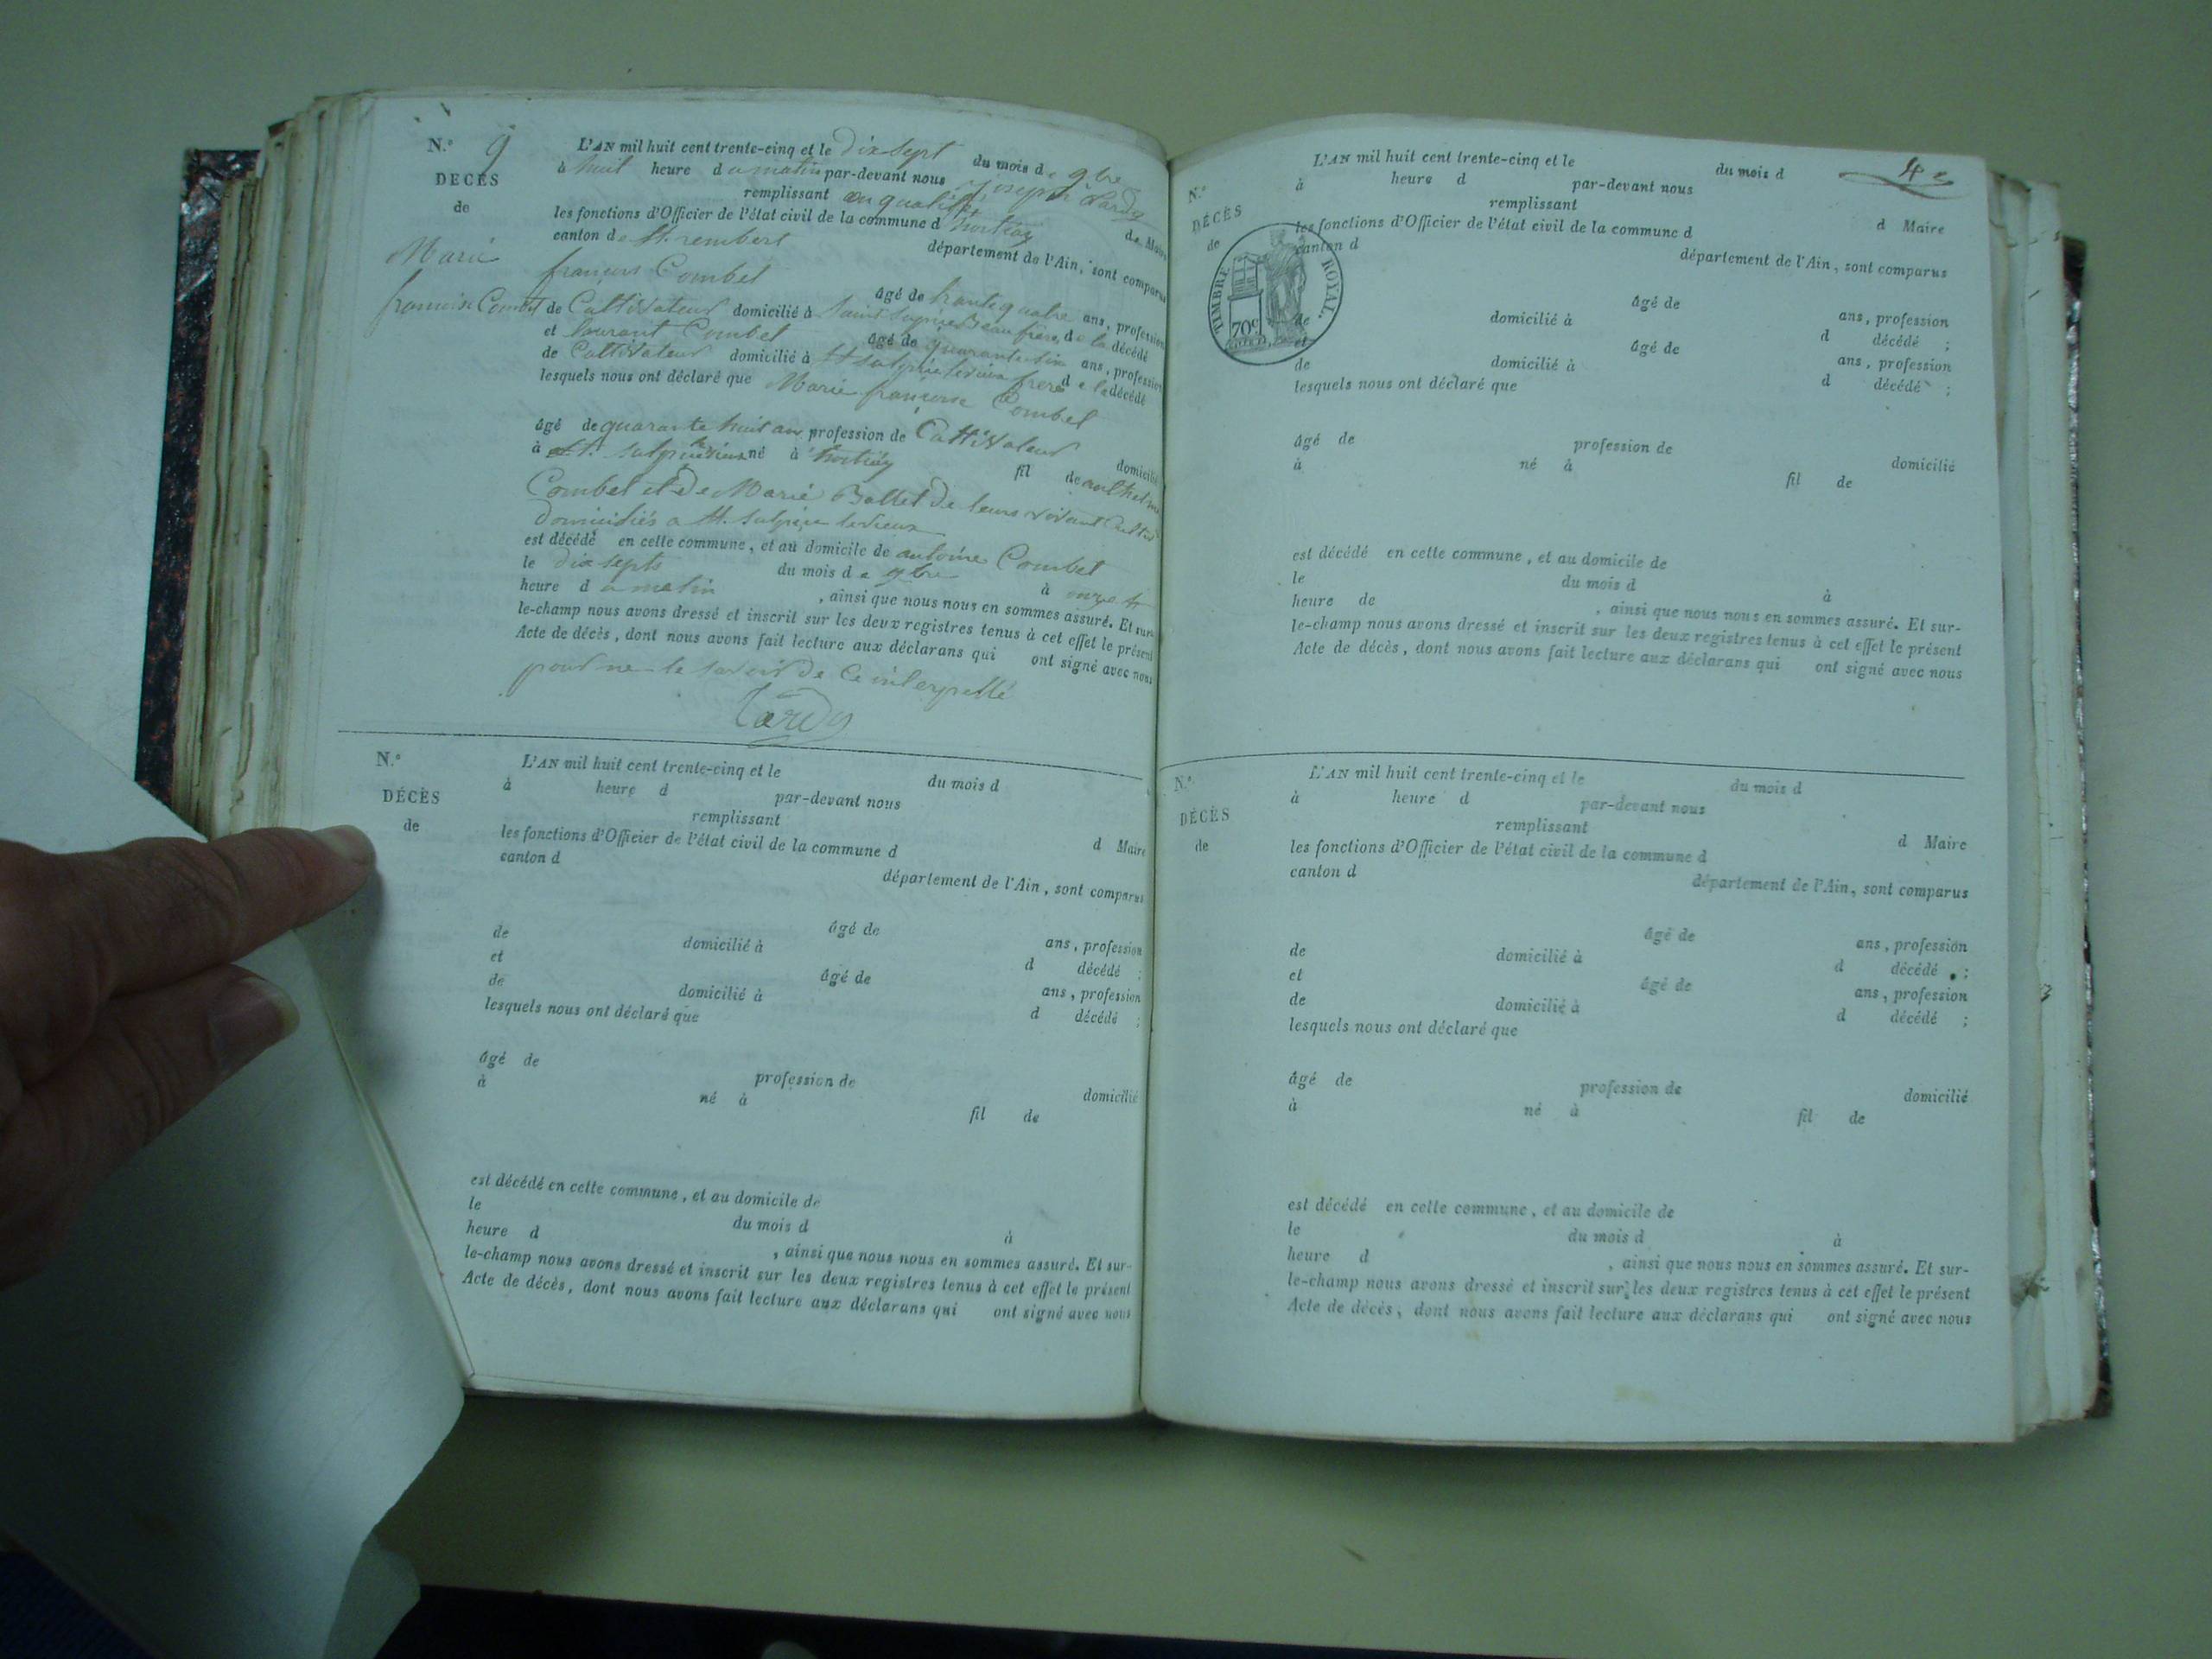 N.º 9
DÉCÈS
de
Marie
francoise Combet
L'AN mil huit cent trente-cinq et le dix sept du mois de 9bre
à huit heure du matin par-devant nous joseph Tardy
remplissant en qualité de Maire
les fonctions d'Officier de l'état civil de la commune d'hostiaz
canton de St. rembert département de l'Ain, sont comparus
françois Combet âgé de trente quatre ans, profession
de Cultivateur domicilié à Saint Sulpice beau frère de la décédé
et laurent Combet âgé de quarante six ans, profession
de Cultivateur domicilié à St Sulpice levieux frere de la décédé
lesquels nous ont déclaré que Marie françoise Combet
âgé de quarante huit an profession de Cultivateur domicilié
à St. Sulpice levieux né à hostiaz fil de anthelme
Combet et de Marie Ballet de leurs vivant Cultiv
Domiciliés a St. Sulpice levieux
est décédé en cette commune, et au domicile de antoine Combet
le dix septs du mois de 9bre à onze
heure du matin, ainsi que nous nous en sommes assuré. Et sur-
le-champ nous avons dressé et inscrit sur les deux registres tenus à cet effet le présent
Acte de décès, dont nous avons fait lecture aux déclarans qui ont signé avec nous
pour ne le savoir de Ce interpellé
Tardy
N.º
DÉCÈS
de
L'AN mil huit cent trente-cinq et le du mois d
à heure d par-devant nous
remplissant d Maire
les fonctions d'Officier de l'état civil de la commune d
canton d département de l'Ain, sont comparus
âgé de ans, profession
de domicilié à d décédé ;
et âgé de ans, profession
de domicilié à d décédé ;
lesquels nous ont déclaré que
âgé de profession de domicilié
à né à fil de
est décédé en cette commune, et au domicile de
le du mois d à
heure d , ainsi que nous nous en sommes assuré. Et sur-
le-champ nous avons dressé et inscrit sur les deux registres tenus à cet effet le présent
Acte de décès, dont nous avons fait lecture aux déclarans qui ont signé avec nous
42
N.º
DÉCÈS
de
TIMBRE ROYAL.
70c
L'AN mil huit cent trente-cinq et le du mois d
à heure d par-devant nous
remplissant d Maire
les fonctions d'Officier de l'état civil de la commune d
canton d département de l'Ain, sont comparus
âgé de ans, profession
de domicilié à d décédé ;
et âgé de ans, profession
de domicilié à d décédé ;
lesquels nous ont déclaré que
âgé de profession de domicilié
à né à fil de
est décédé en cette commune, et au domicile de
le du mois d à
heure de , ainsi que nous nous en sommes assuré. Et sur-
le-champ nous avons dressé et inscrit sur les deux registres tenus à cet effet le présent
Acte de décès, dont nous avons fait lecture aux déclarans qui ont signé avec nous
N.º
DÉCÈS
de
L'AN mil huit cent trente-cinq et le du mois d
à heure d par-devant nous
remplissant d Maire
les fonctions d'Officier de l'état civil de la commune d
canton d département de l'Ain, sont comparus
âgé de ans, profession
de domicilié à d décédé ;
et âgé de ans, profession
de domicilié à d décédé ;
lesquels nous ont déclaré que
âgé de profession de domicilié
à né à fil de
est décédé en cette commune, et au domicile de
le du mois d à
heure d , ainsi que nous nous en sommes assuré. Et sur-
le-champ nous avons dressé et inscrit sur les deux registres tenus à cet effet le présent
Acte de décès, dont nous avons fait lecture aux déclarans qui ont signé avec nous